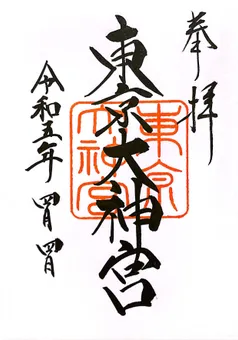 奉拝
東京大神宮
東京大神宮
令和五年 四月 四日